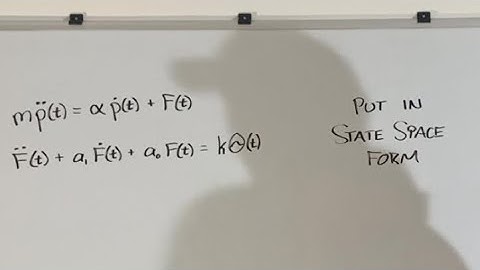 mp̈(t) = αṗ(t) + F(t)
F̈(t) + a₁Ḟ(t) + a₀F(t) = kΘ(t)
PUT IN
STATE SPACE
FORM